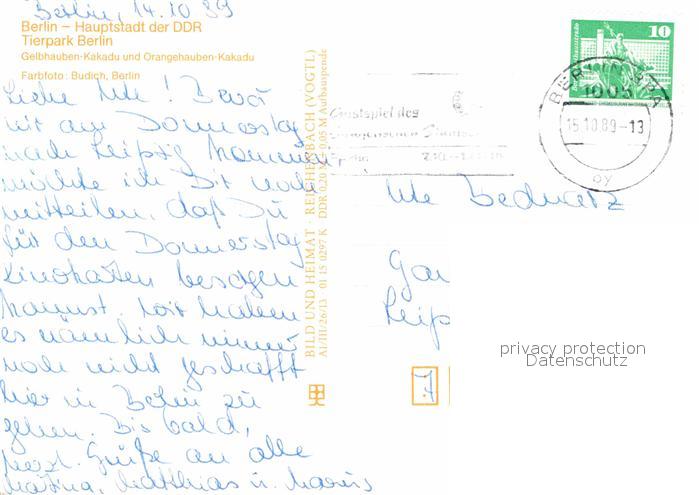 Berlin, 14.10.89
Berlin – Hauptstadt der DDR
Tierpark Berlin
Gelbhauben-Kakadu und Orangehauben-Kakadu
Farbfoto: Budich, Berlin
Liebe Ute! Bevor
wir am Donnerstag
nach Leipzig kommen
möchte ich Dir noch
mitteilen, daß Du
für den Donnerstag
Kinokarten besorgen
kannst. Wir haben
es nämlich immer
noch nicht geschafft
hier in Berlin zu
gehen. Bis bald,
herzl. Grüße an alle
Katrina, Matthias u. Marius
BILD UND HEIMAT · REICHENBACH (VOGTL)
A1/III/26/13 01 15 0297 K DDR 0,20 M 0,05 M Aufbauspende
10
Gastspiel des
BERLIN BPA
1005
15.10.89-13
oy
Ute Bednarz
Leip
7
privacy protection
Datenschutz